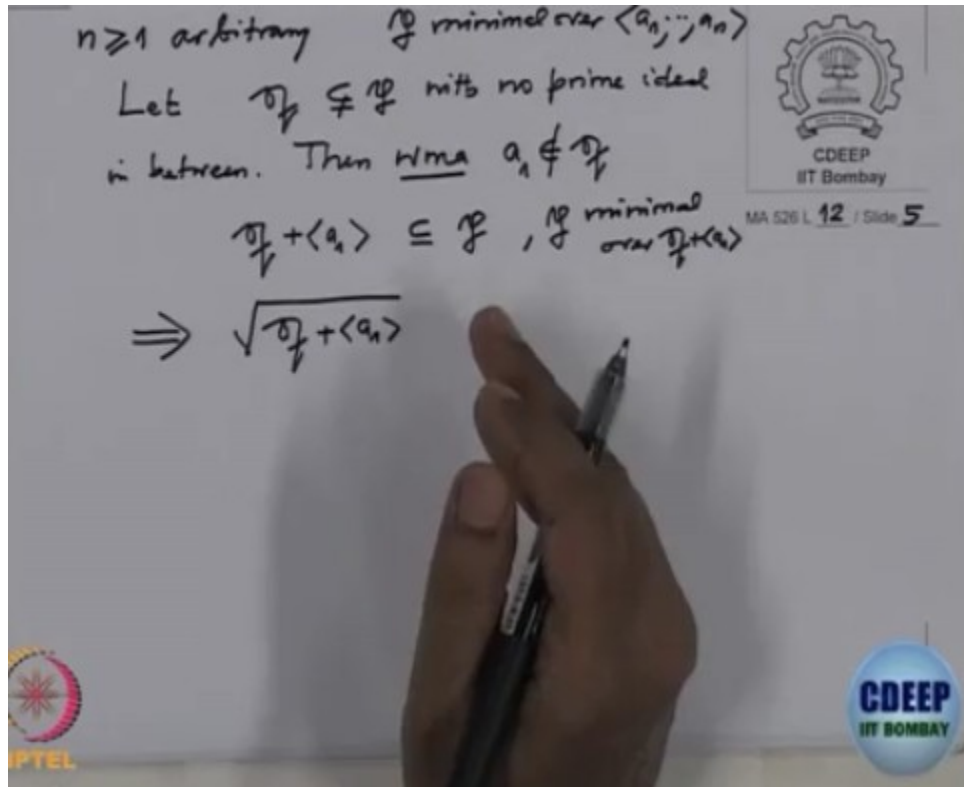 n ⩾ 1 arbitrary 𝔭 minimal over <a₁,…,aₙ>
Let 𝔮 ⊊ 𝔭 with no prime ideal
in between. Then wma a₁ ∉ 𝔮
𝔮 + <a₁> ⊆ 𝔭 , 𝔭 minimal
over 𝔮+<a₁>
⟹ √(𝔮 + <a₁>)
CDEEP
IIT Bombay
MA 526 L 12 / Slide 5
PTEL
CDEEP
IIT BOMBAY